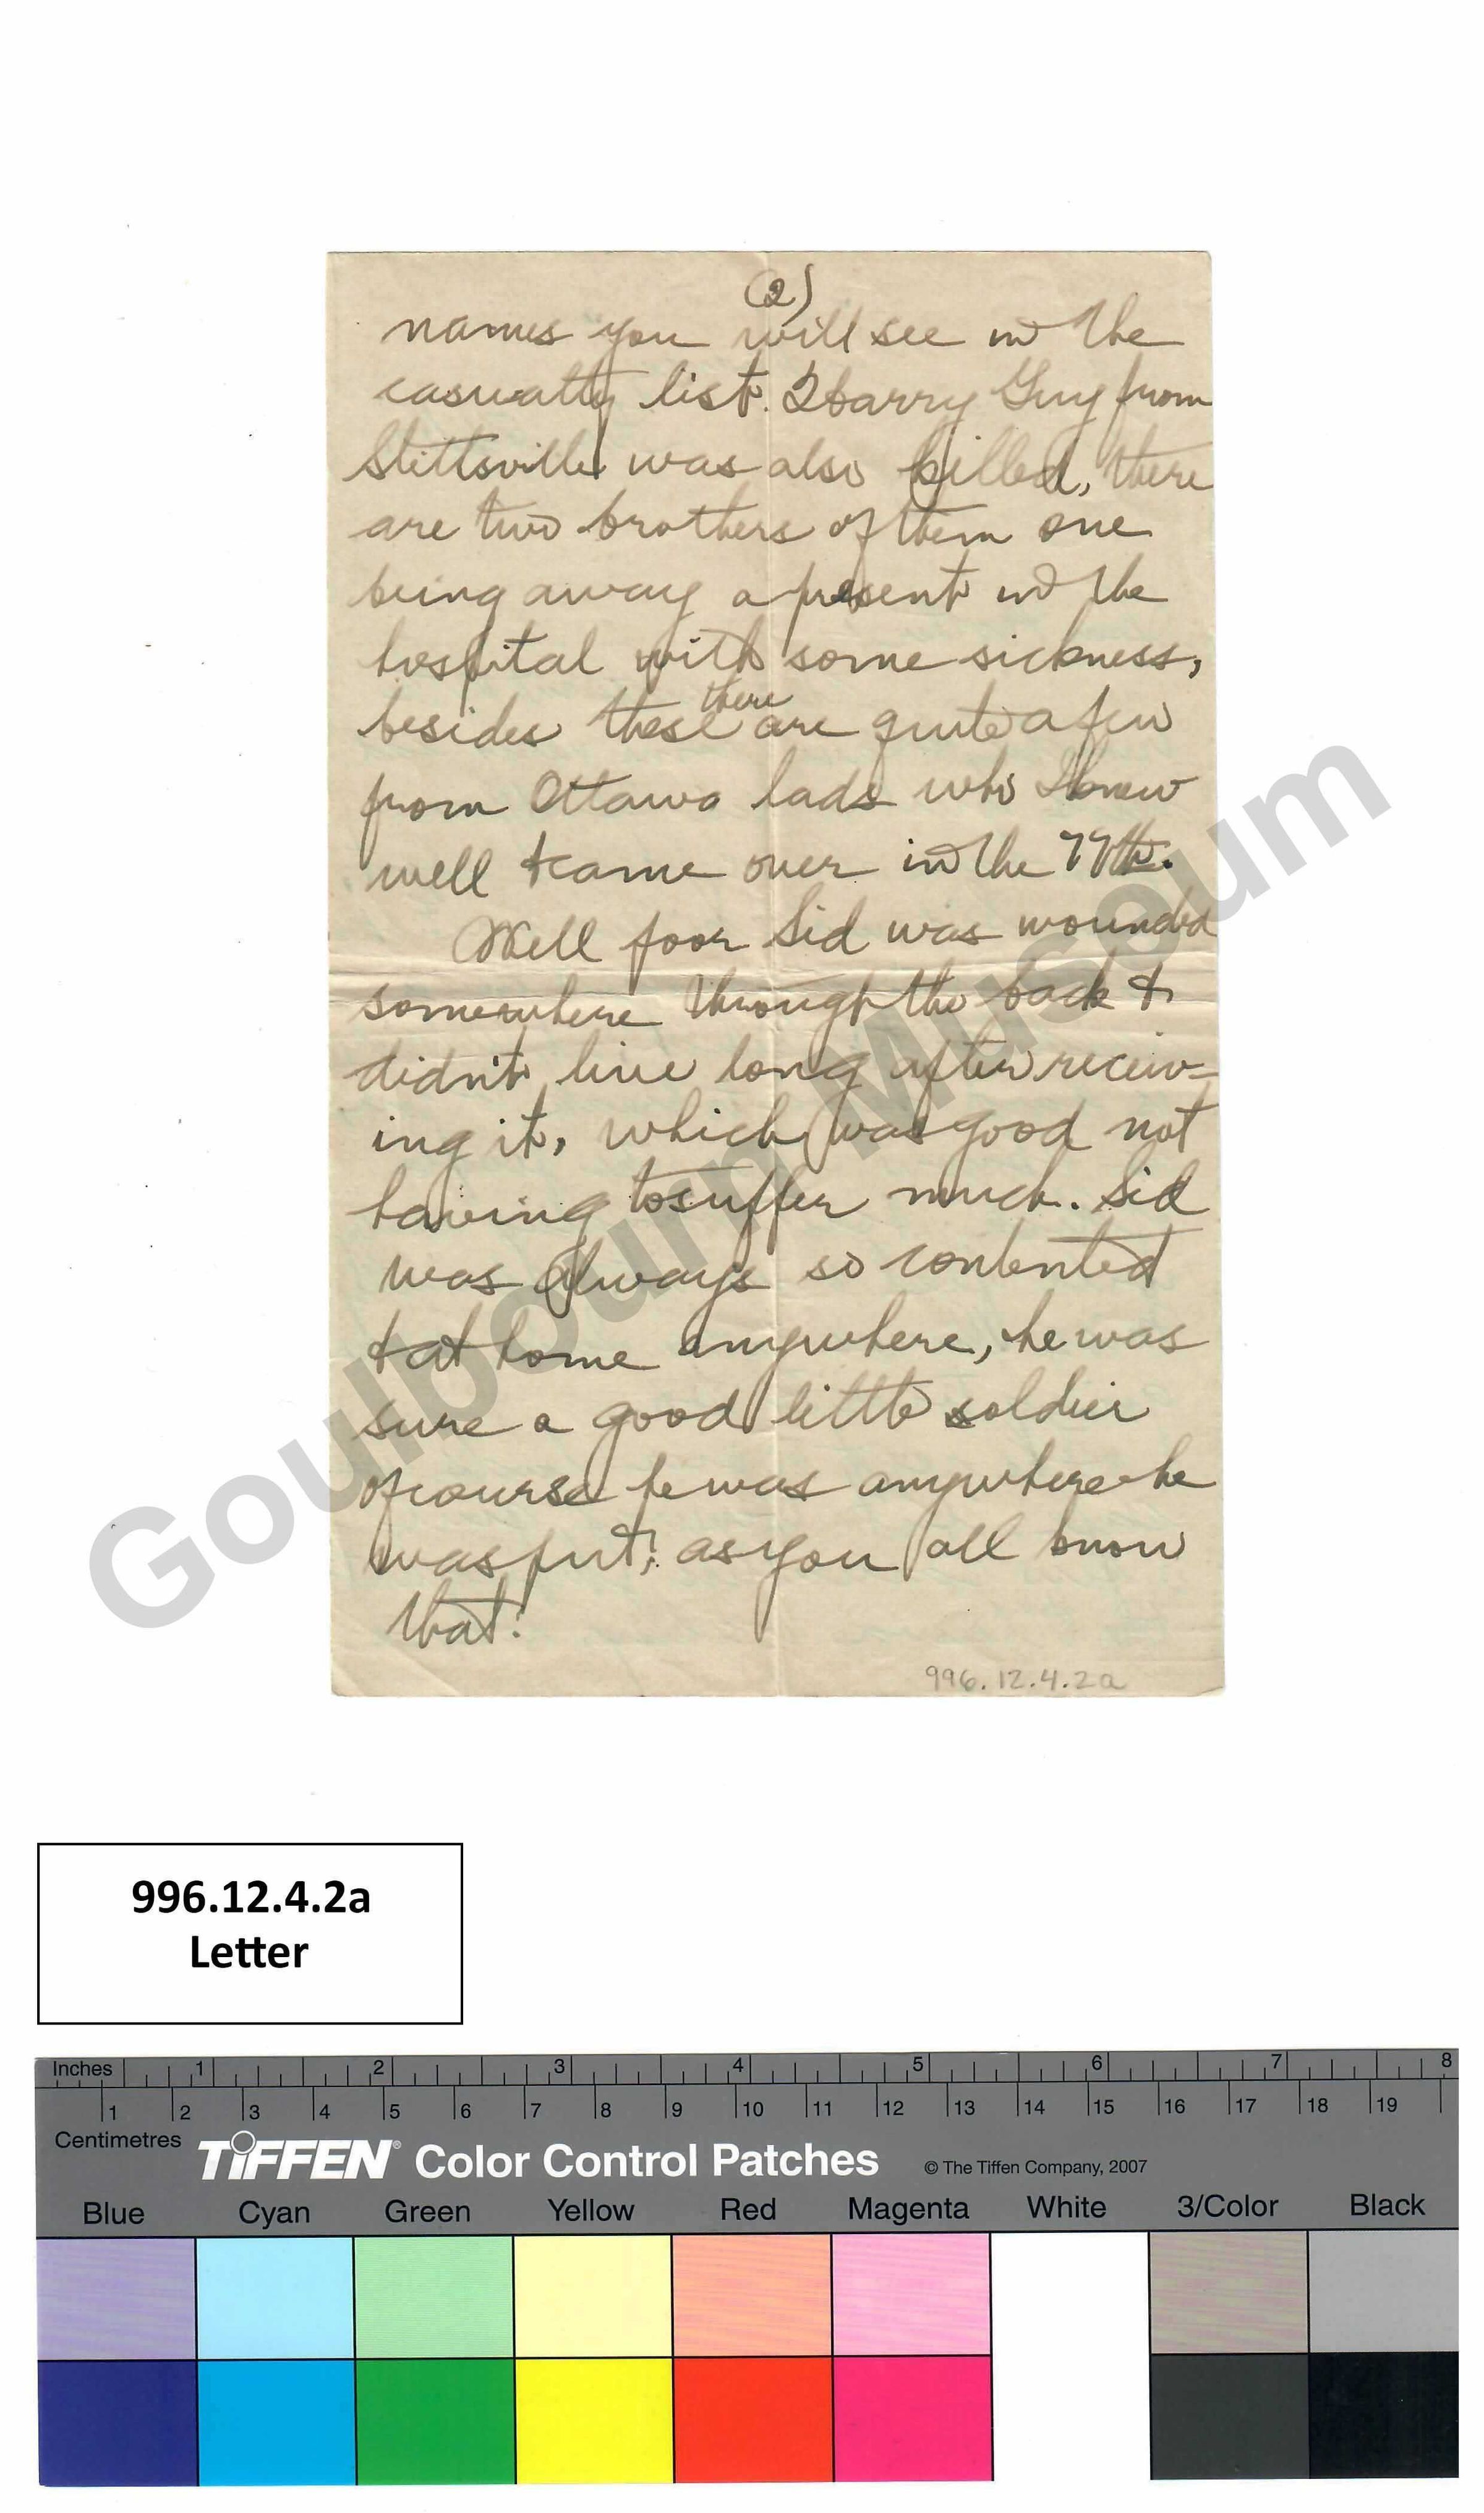 (2)
names you will see in the
casualty list. Harry Guy from
Stittsville was also killed, there
are two brothers of them one
being away a present in the
hospital with some sickness,
besides these there are quite a few
from Ottawa lads who I knew
well & came over in the 77th.
Well poor Sid was wounded
somewhere through the back &
didn't live long after receiv=
ing it, which was good not
having to suffer much. Sid
was always so contented
& at home anywhere, he was
sure a good little soldier
of course he was anywhere he
was put; as you all know
that.
996.12.4.2a
Goulbourn Museum
996.12.4.2a
Letter
Inches 1 2 3 4 5 6 7 8
1 2 3 4 5 6 7 8 9 10 11 12 13 14 15 16 17 18 19
Centimetres
TIFFEN® Color Control Patches © The Tiffen Company, 2007
Blue Cyan Green Yellow Red Magenta White 3/Color Black